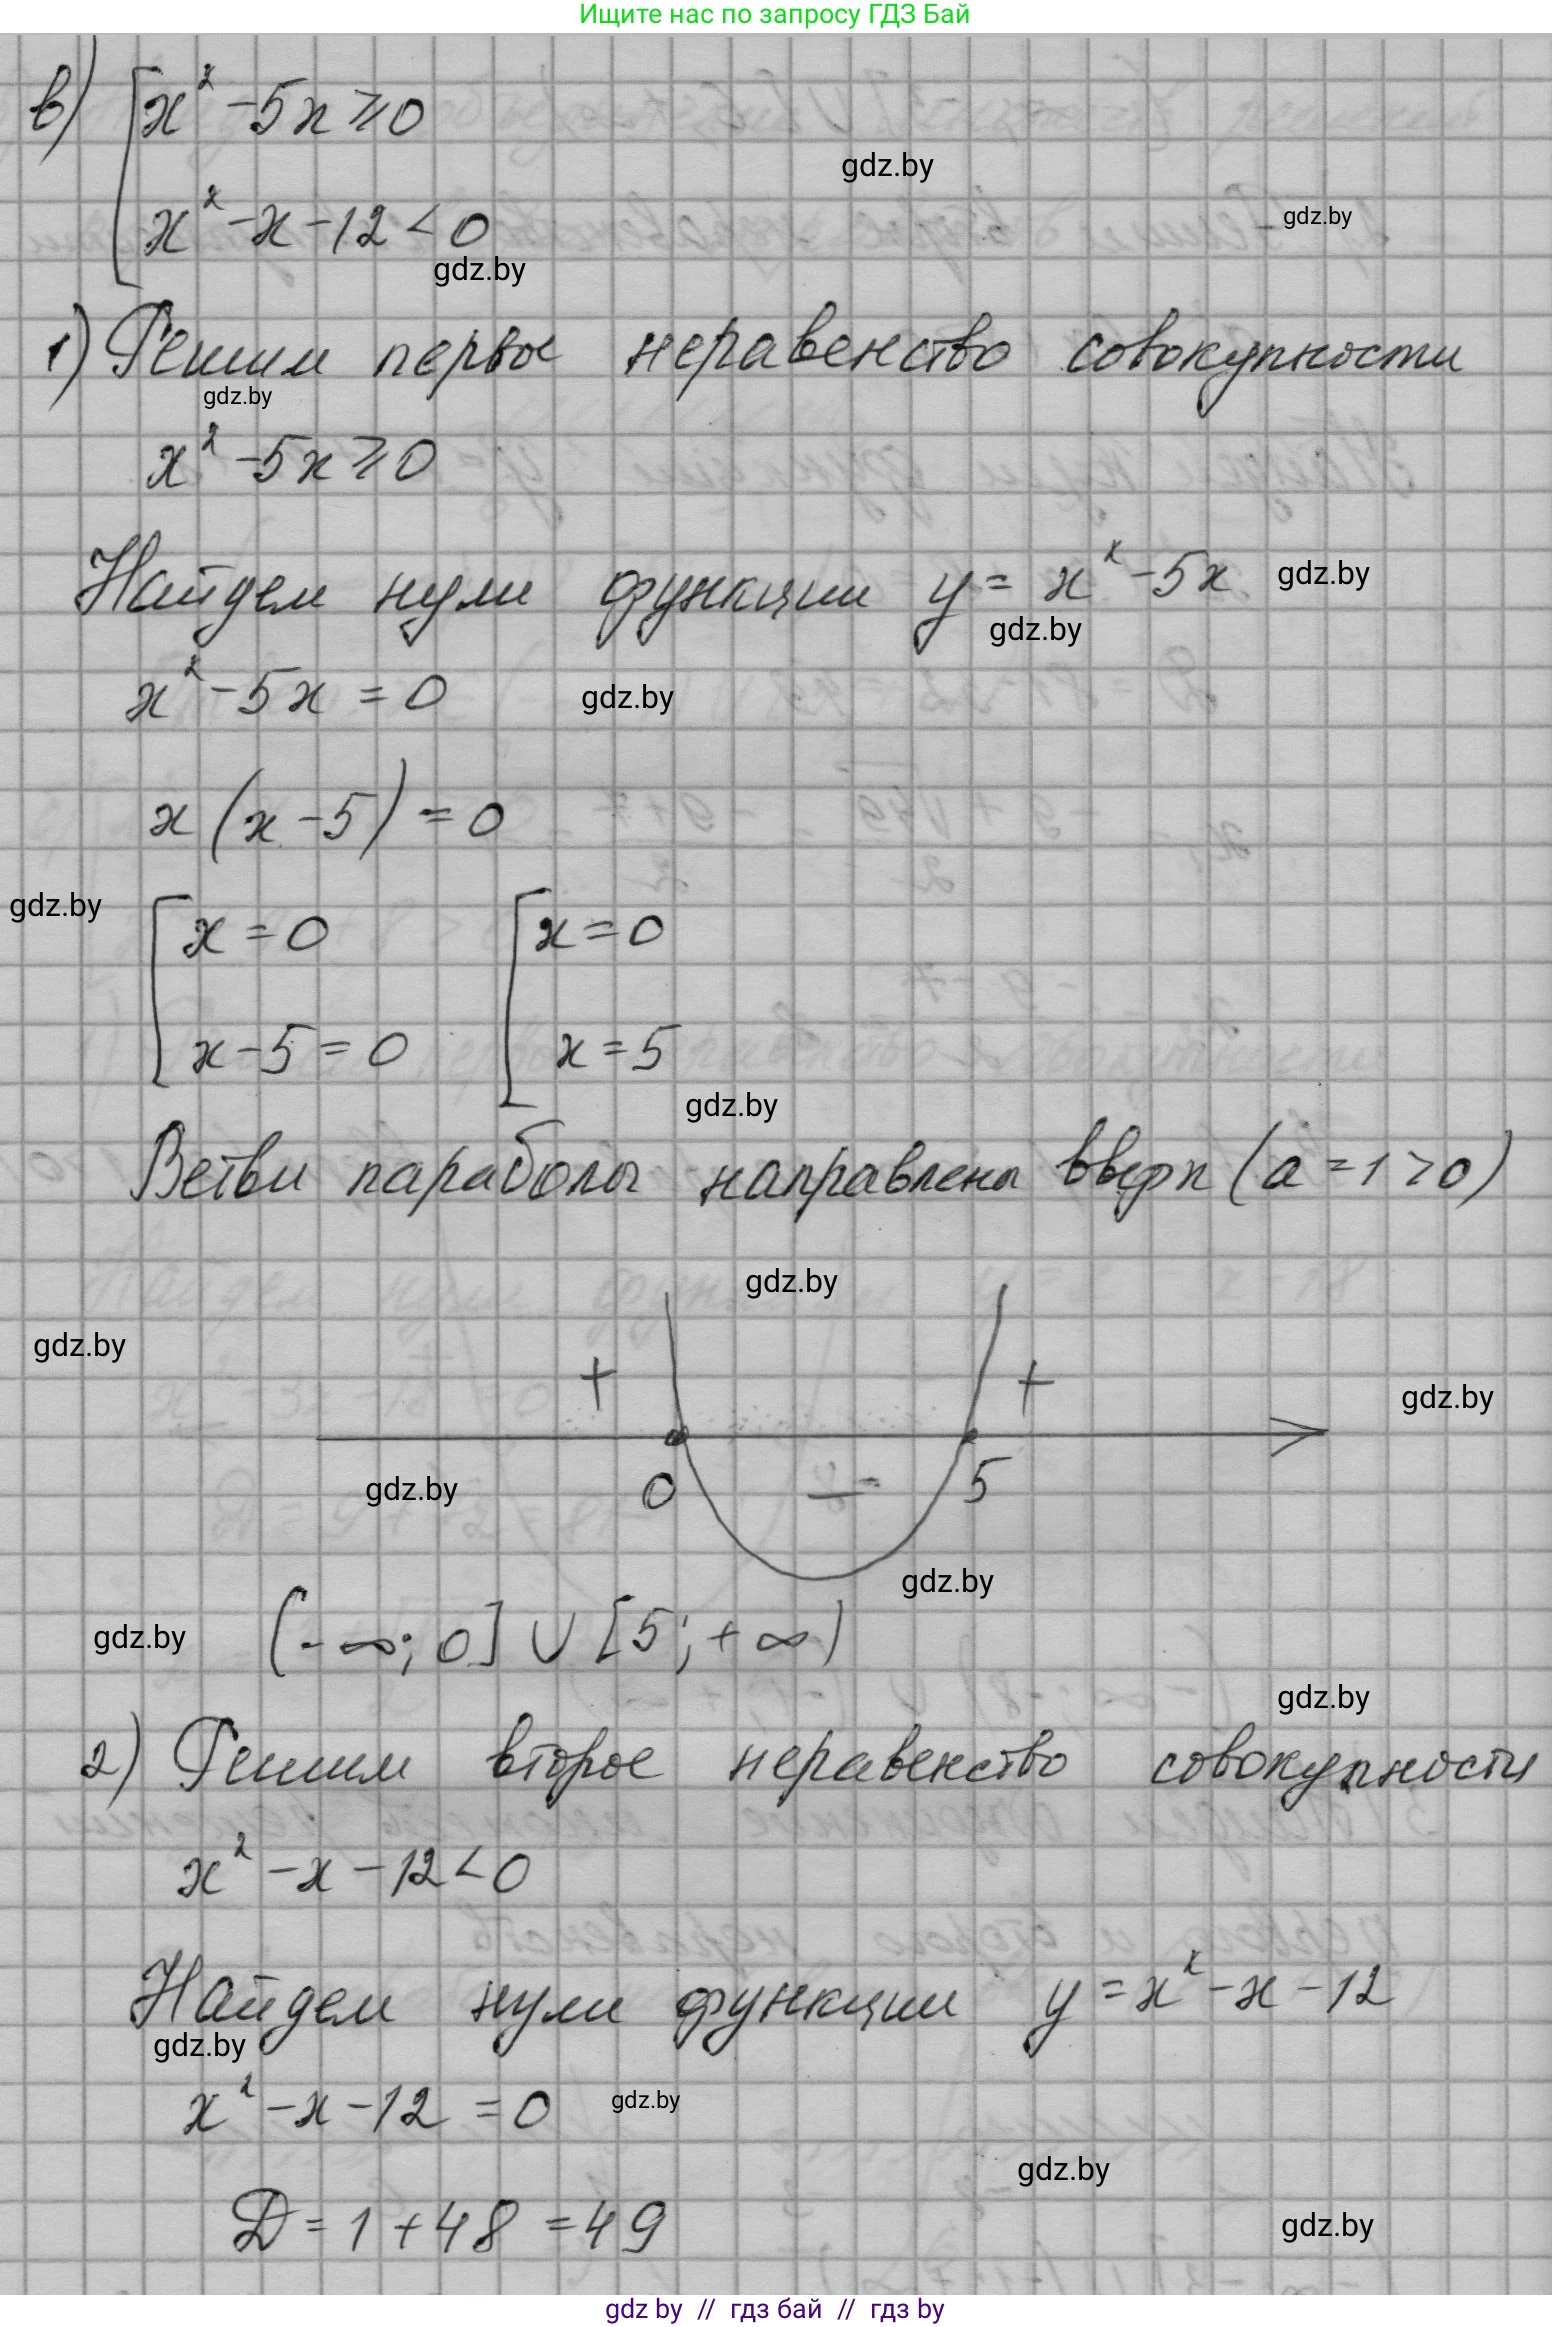 Ищите нас по запросу ГДЗ Бай
в) [ x² - 5x ≥ 0
gdz.by
gdz.by
x² - x - 12 < 0
gdz.by
1) Решим первое неравенство совокупности
gdz.by
x² - 5x ≥ 0
Найдем нули функции y = x² - 5x gdz.by
gdz.by
x² - 5x = 0 gdz.by
x (x - 5) = 0
gdz.by
[ x = 0 [ x = 0
x - 5 = 0 x = 5
gdz.by
Ветви параболы направлены вверх (a = 1 > 0)
gdz.by
gdz.by
+ +
gdz.by
gdz.by 0 - 5
gdz.by
gdz.by (-∞; 0] ∪ [5; +∞)
gdz.by
2) Решим второе неравенство совокупности
x² - x - 12 < 0
Найдем нули функции y = x² - x - 12
gdz.by
x² - x - 12 = 0 gdz.by
gdz.by
D = 1 + 48 = 49 gdz.by
gdz by // гдз бай // гдз by